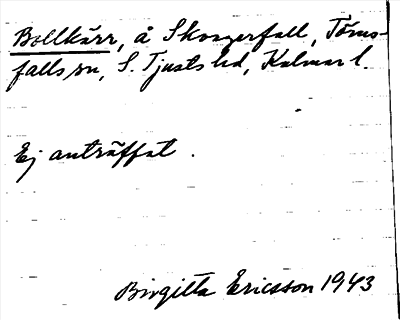 Bollkärr, å Skogerfall, Törns-
falls sn, S. Tjusts hd, Kalmar l.
Ej anträffat.
Birgitta Ericsson 1943